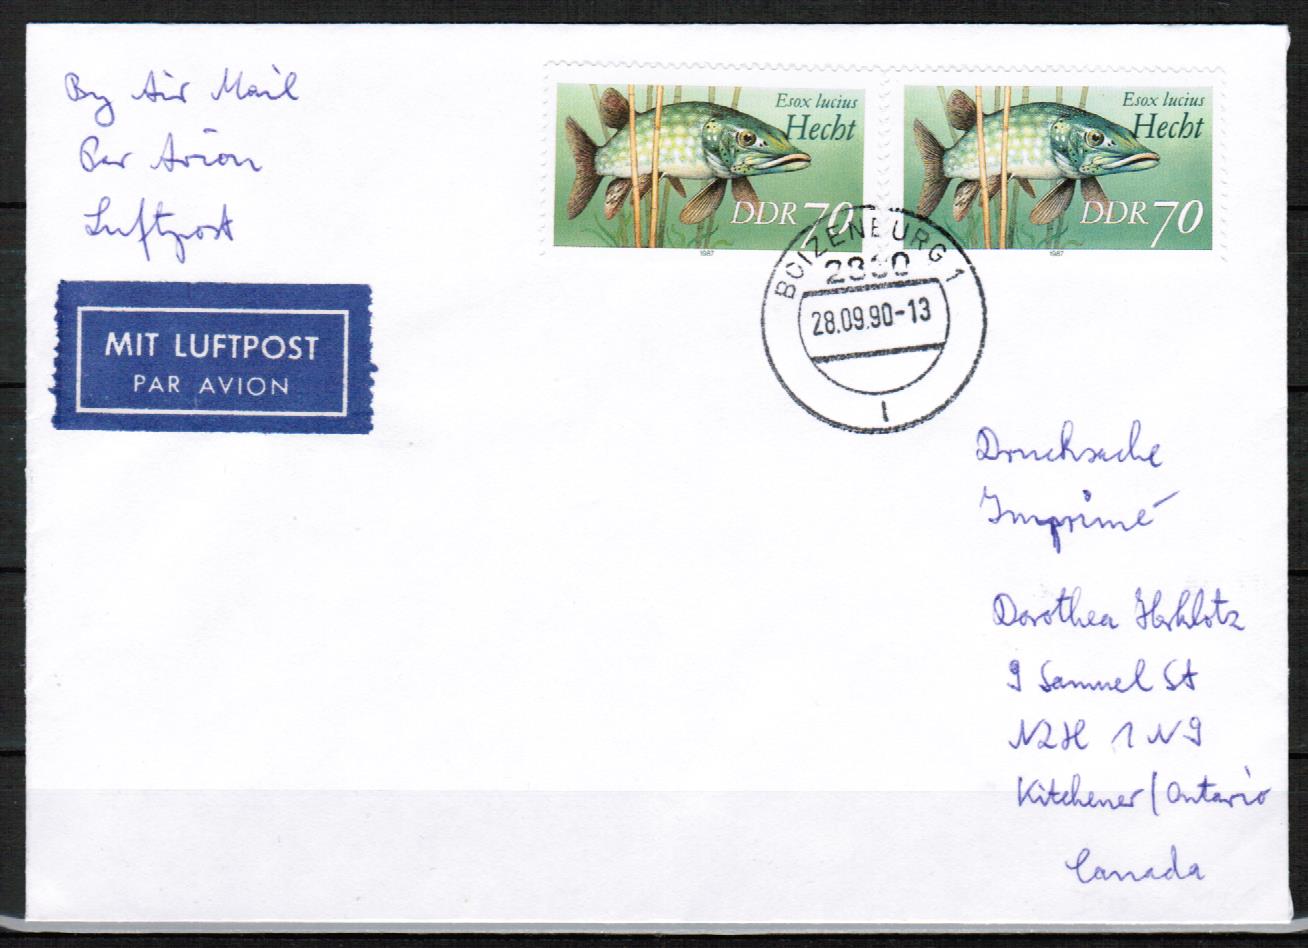 By Air Mail
Par Avion
Luftpost
MIT LUFTPOST
PAR AVION
Esox lucius
Hecht
DDR 70
1987
Esox lucius
Hecht
DDR 70
1987
BOIZENBURG 1
2830
28.09.90-13
l
Drucksache
Imprimé
Dorothea Herklotz
9 Samuel St
N2H 1N9
Kitchener/Ontario
Canada